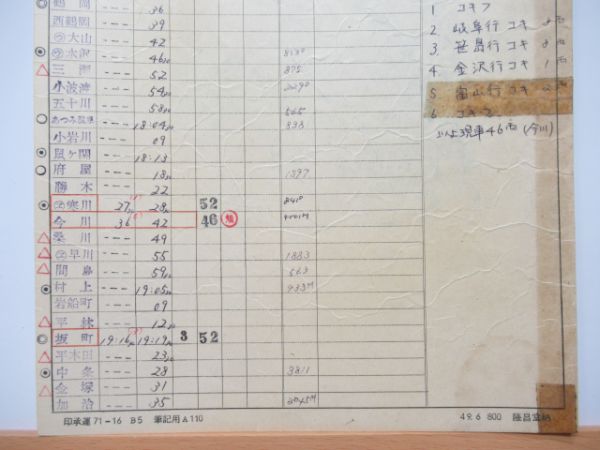 鶴岡 --- 36
西鶴岡 --- 39
大山 --- 42
水沢 --- 48
三瀬 --- 52
小波渡 --- 54
五十川 --- 58 565
あつみ温泉 --- 18:04 833
小岩川 --- 09
鼠ヶ関 --- 18:13
府屋 --- 18
勝木 --- 22
寒川 27 28 52
今川 36 42 46
桑川 --- 49
早川 --- 55
間島 --- 59 563
村上 --- 19:05 933M
岩船町 --- 09
平林 --- 12
坂町 19:16 19:19 3 52
平木田 --- 23
中条 --- 28
金塚 --- 31
加治 --- 35
1 コキフ
2 岐阜行コキ
3 笹島行コキ
4 金沢行コキ 1両
5 富山行コキ 2両
6 コキフ
以上現車46両(今川)
印承運71-16 B5 筆記用A110
49.6 800 陸昌堂納